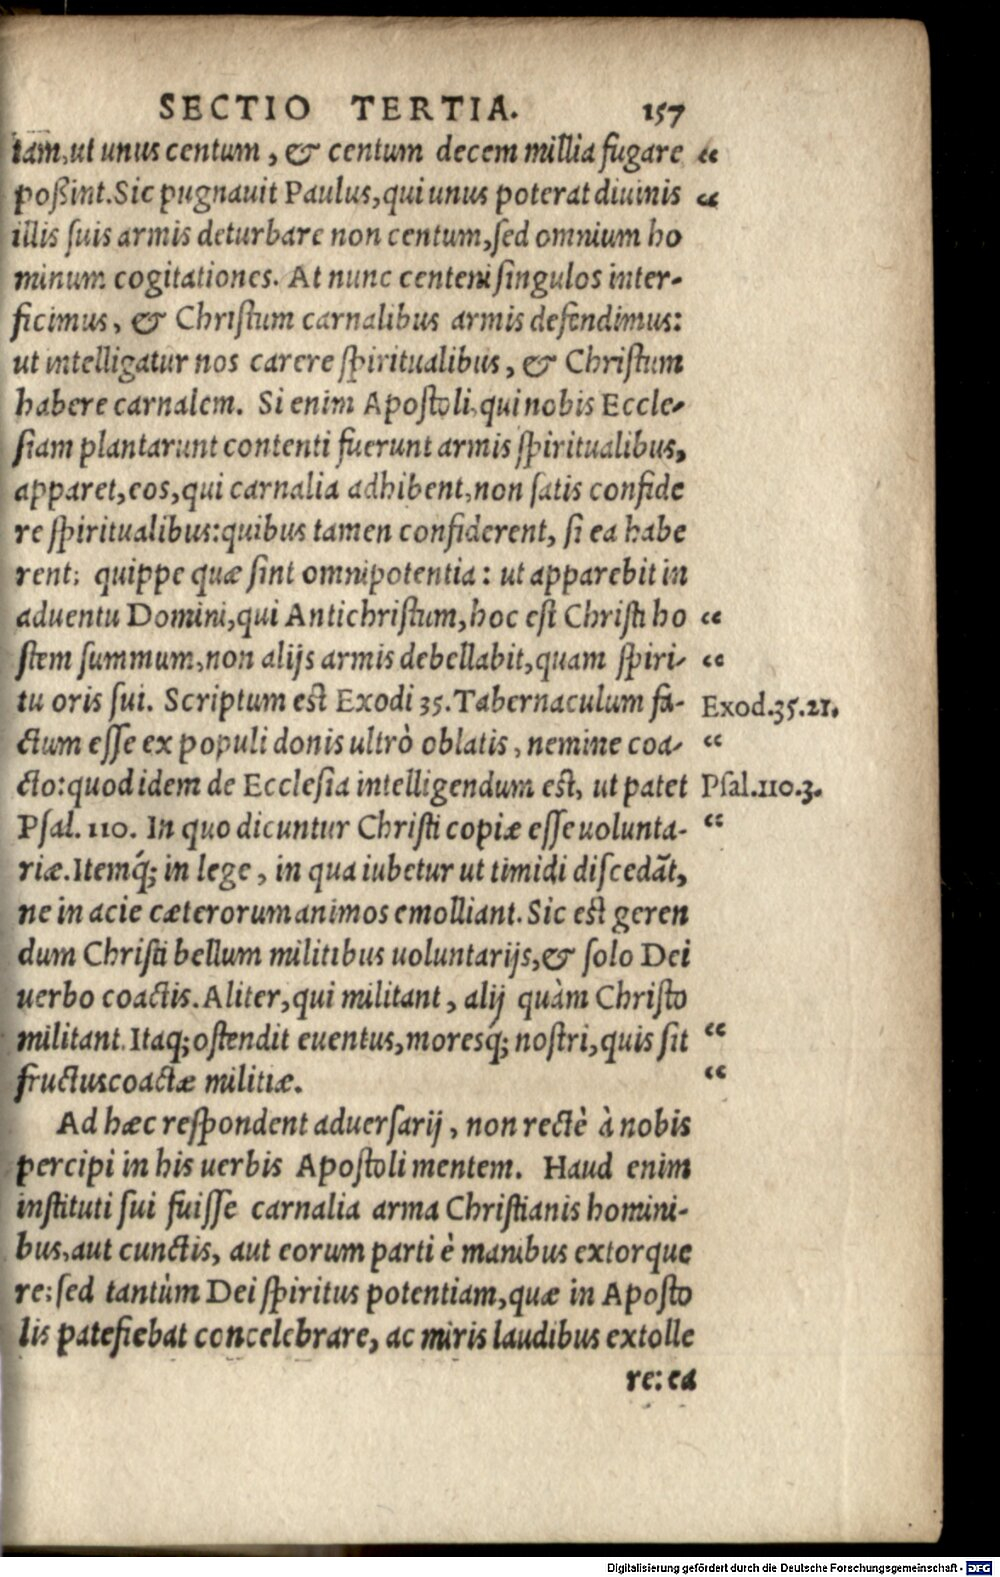 SECTIO TERTIA. 157
tam, ut unus centum, & centum decem millia fugare “
poßint. Sic pugnauit Paulus, qui unus poterat diuinis “
illis suis armis deturbare non centum, sed omnium ho
minum cogitationes. At nunc centeni singulos inter-
ficimus, & Christum carnalibus armis defendimus:
ut intelligatur nos carere spiritualibus, & Christum
habere carnalem. Si enim Apostoli, qui nobis Eccle-
siam plantarunt contenti fuerunt armis spiritualibus,
apparet, eos, qui carnalia adhibent, non satis confide
re spiritualibus: quibus tamen confiderent, si ea habe
rent: quippe quæ sint omnipotentia: ut apparebit in
aduentu Domini, qui Antichristum, hoc est Christi ho “
stem summum, non alijs armis debellabit, quam spiri- “
tu oris sui. Scriptum est Exodi 35. Tabernaculum fa- Exod.35.21.
ctum esse ex populi donis ultrò oblatis, nemine coa- “
cto: quod idem de Ecclesia intelligendum est, ut patet Psal.110.3.
Psal. 110. In quo dicuntur Christi copiæ esse uolunta- “
riæ. Itemq́; in lege, in qua iubetur ut timidi discedãt,
ne in acie cæterorum animos emolliant. Sic est geren
dum Christi bellum militibus uoluntarijs, & solo Dei
uerbo coactis. Aliter, qui militant, alij quàm Christo
militant. Itaq; ostendit euentus, moresq́; nostri, quis sit “
fructus coactæ militiæ. “
Ad hæc respondent aduersarij, non rectè à nobis
percipi in his uerbis Apostoli mentem. Haud enim
instituti sui fuisse carnalia arma Christianis homini-
bus, aut cunctis, aut eorum parti è manibus extorque
re: sed tantùm Dei spiritus potentiam, quæ in Aposto
lis patefiebat concelebrare, ac miris laudibus extolle
re: ea
Digitalisierung gefördert durch die Deutsche Forschungsgemeinschaft - DFG